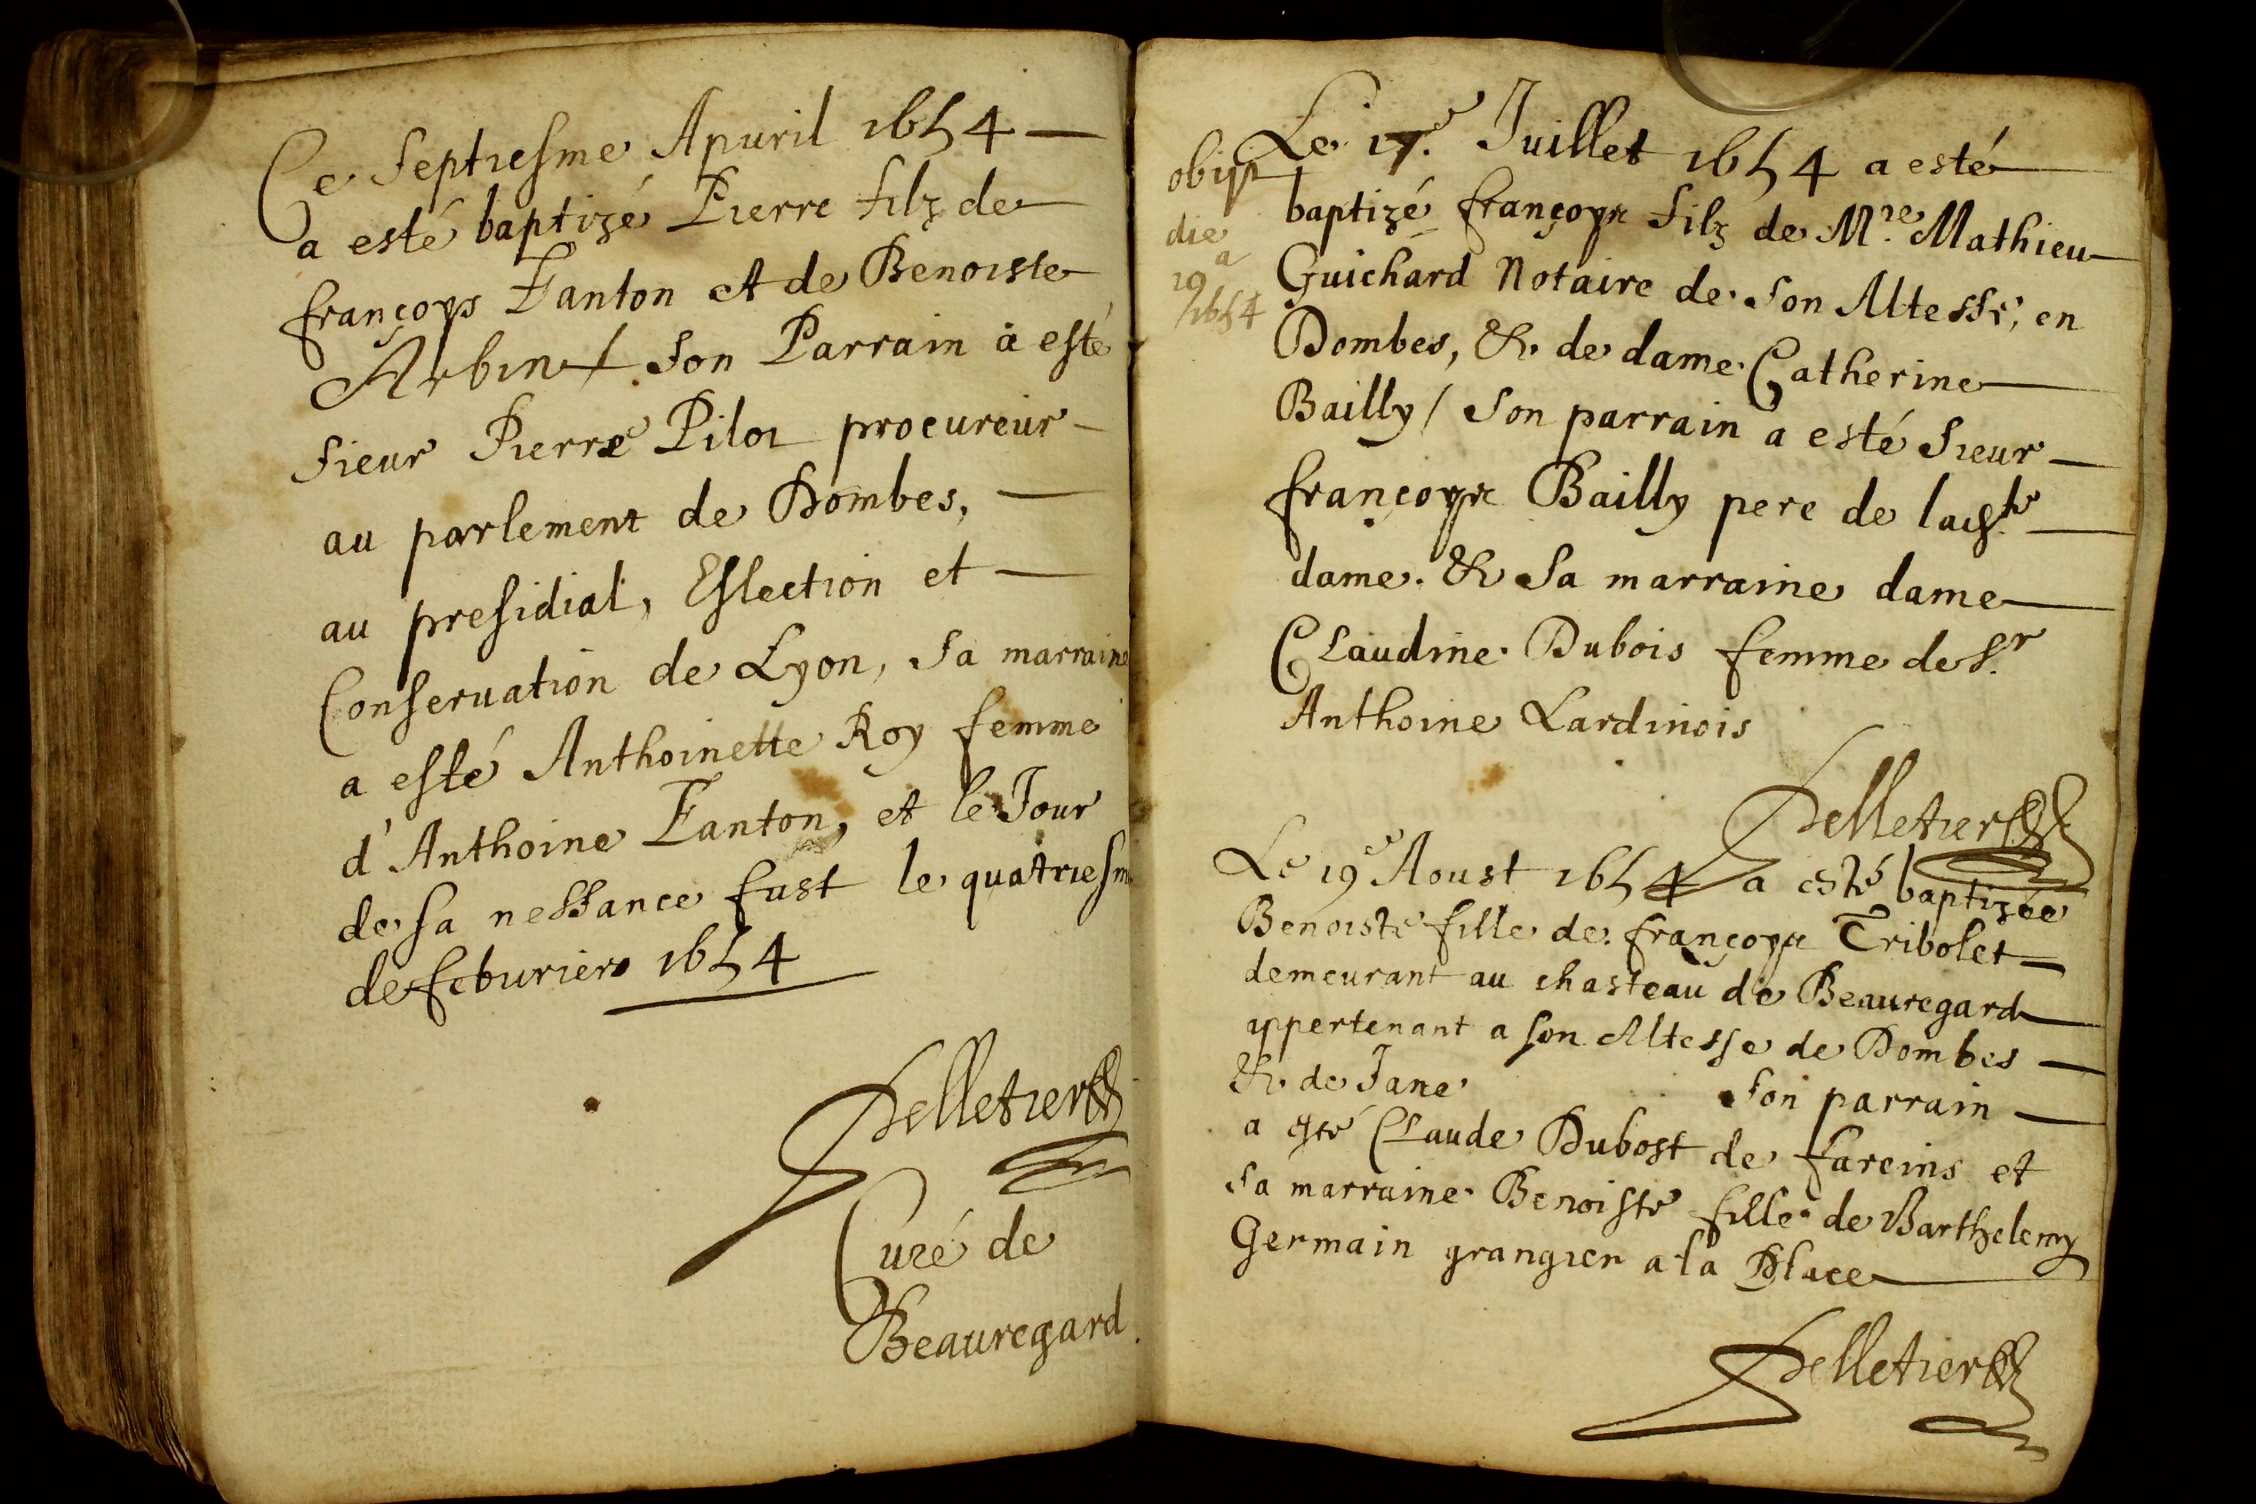 Ce septiesme Apuril 1654
a esté baptizé Pierre filz de
françoys Fanton et de Benoiste
Arbinet son Parrain a esté
sieur Pierre Pilot procureur
au parlement de Dombes,
au presidial, Eslection et
Conseruation de Lyon, sa marraine
a esté Anthoinette Roy femme
d'Anthoine Fanton, et le Jour
de sa nessance fust le quatriesme
de feburier 1654
Pelletier
Curé de
Beauregard.
obijt
die
19a
1654
Le 17.e Juillet 1654 a esté
baptizé françoys filz de M.re Mathieu
Guichard Notaire de son Altesse, en
Dombes, & de dame Catherine
Bailly / son parrain a esté sieur
françoys Bailly pere de lad.te
dame. & sa marraine dame
Claudine Dubois femme de S.r
Anthoine Lardinois
Pelletier
Le 19e Aoust 1654 a esté baptizée
Benoiste fille de françoys Tribolet
demeurant au chasteau de Beauregard
appertenant a son Altesse de Dombes
& de Jane son parrain
a esté Claude Dubost de fareins et
sa marraine Benoiste fille de Barthelemy
Germain grangier a la Place
Pelletier